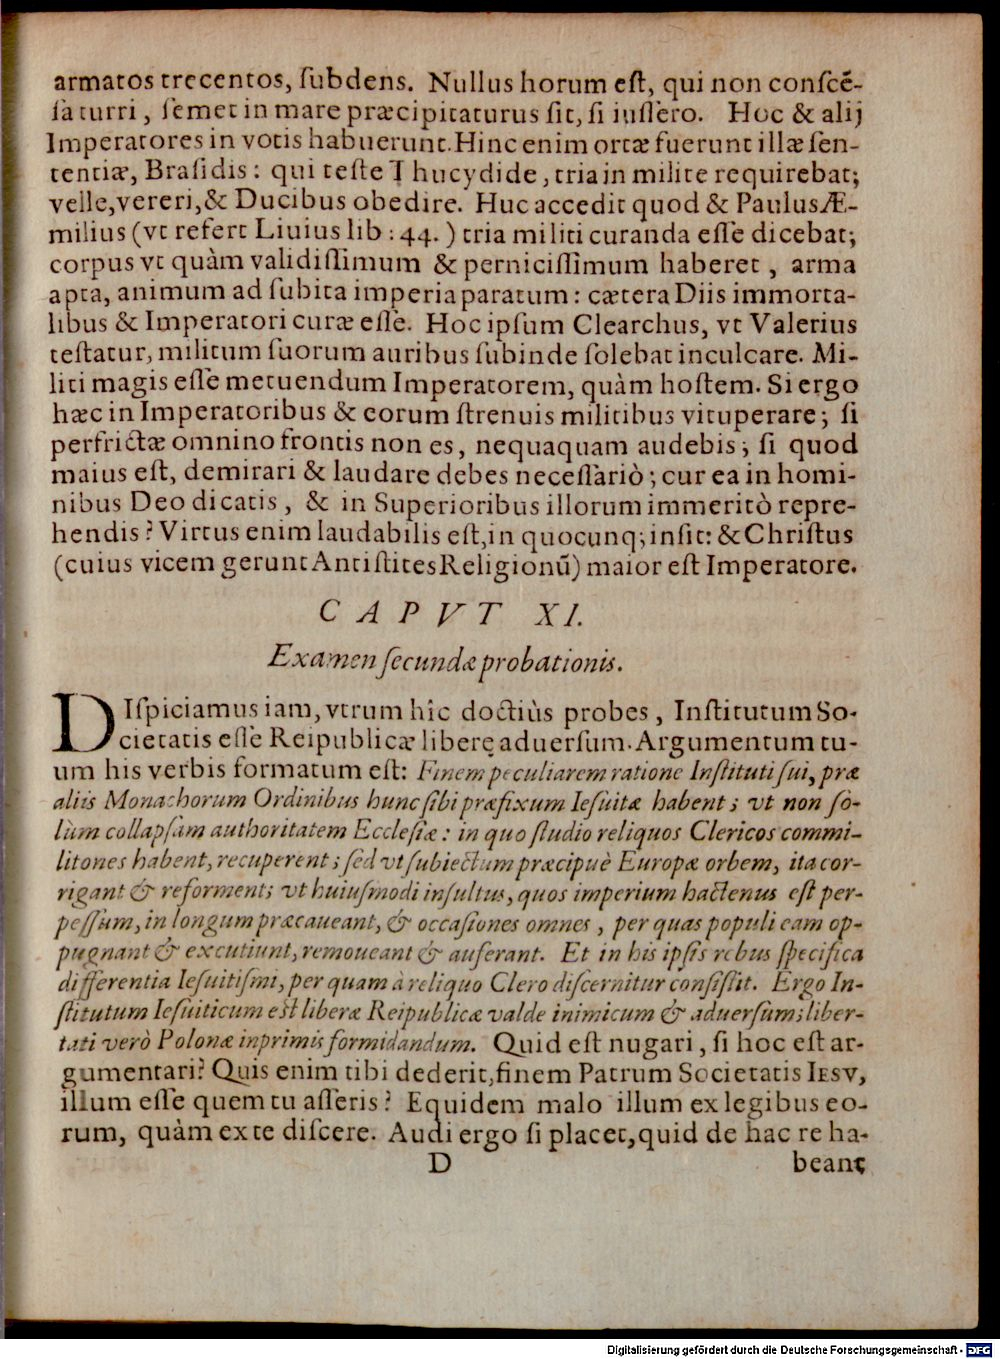 armatos trecentos, ſubdens. Nullus horum eſt, qui non conſcē-
ſa turri, ſemet in mare præcipitaturus ſit, ſi iuſſero. Hoc & alij
Imperatores in votis habuerunt. Hinc enim ortæ fuerunt illæ ſen-
tentiæ, Braſidis: qui teſte Thucydide, tria in milite requirebat;
velle, vereri, & Ducibus obedire. Huc accedit quod & Paulus Æ-
milius (vt refert Liuius lib: 44.) tria militi curanda eſſe dicebat;
corpus vt quàm validiſſimum & perniciſſimum haberet, arma
apta, animum ad ſubita imperia paratum: cætera Diis immorta-
libus & Imperatori curæ eſſe. Hoc ipſum Clearchus, vt Valerius
teſtatur, militum ſuorum auribus ſubinde ſolebat inculcare. Mi-
liti magis eſſe metuendum Imperatorem, quàm hoſtem. Si ergo
hæc in Imperatoribus & eorum ſtrenuis militibus vituperare; ſi
perfrictæ omnino frontis non es, nequaquam audebis; ſi quod
maius eſt, demirari & laudare debes neceſſariò; cur ea in homi-
nibus Deo dicatis, & in Superioribus illorum immeritò repre-
hendis? Virtus enim laudabilis eſt, in quocunq; inſit: & Chriſtus
(cuius vicem gerunt Antiſtites Religionū) maior eſt Imperatore.
CAPVT XI.
Examen ſecundæ probationis.
DIſpiciamus iam, vtrum hîc doctiùs probes, Inſtitutum So-
cietatis eſſe Reipublicæ liberę aduerſum. Argumentum tu-
um his verbis formatum eſt: Finem peculiarem ratione Inſtituti ſui, præ
aliis Monachorum Ordinibus hunc ſibi præfixum Ieſuitæ habent; vt non ſo-
lùm collapſam authoritatem Eccleſiæ: in quo ſtudio reliquos Clericos commi-
litones habent, recuperent; ſed vt ſubiectum præcipuè Europæ orbem, ita cor-
rigant & reforment; vt huiuſmodi inſultus, quos imperium hactenus eſt per-
peſſum, in longum præcaueant, & occaſiones omnes, per quas populi eam op-
pugnant & excutiunt, remoueant & auferant. Et in his ipſis rebus ſpecifica
differentia Ieſuitiſmi, per quam à reliquo Clero diſcernitur conſiſtit. Ergo In-
ſtitutum Ieſuiticum eſt liberæ Reipublicæ valde inimicum & aduerſum; liber-
tati verò Polonæ inprimis formidandum. Quid eſt nugari, ſi hoc eſt ar-
gumentari? Quis enim tibi dederit, finem Patrum Societatis IESV,
illum eſſe quem tu aſſeris? Equidem malo illum ex legibus eo-
rum, quàm ex te diſcere. Audi ergo ſi placet, quid de hac re ha-
D beant
Digitalisierung gefördert durch die Deutsche Forschungsgemeinschaft - DFG